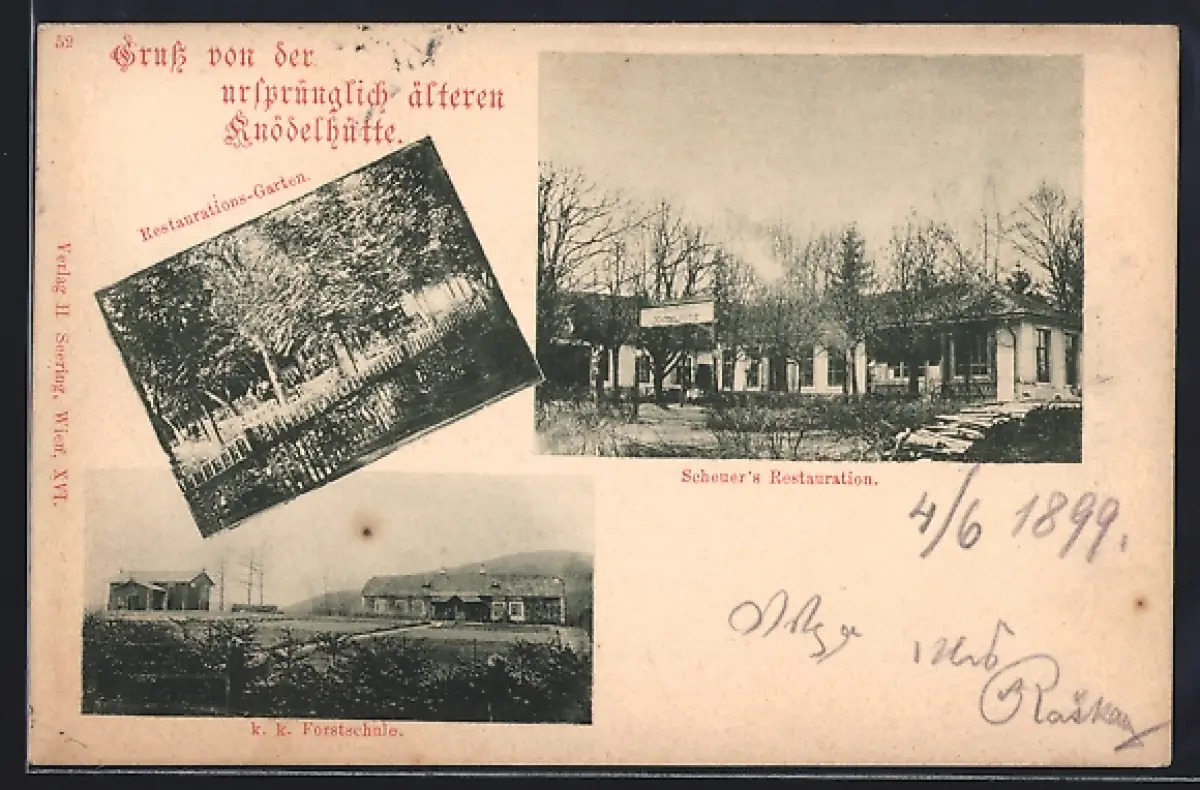 52
Gruß von der
ursprünglich älteren
Knödelhütte.
Restaurations-Garten.
Verlag H Seering, Wien, XVI.
Scheuer's Restauration.
4/6 1899.
k. k. Forstschule.